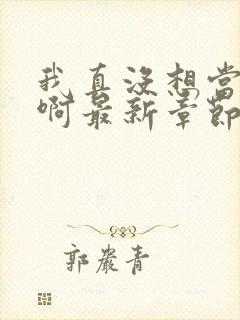 我真没想当
啊最新章节
郭严青